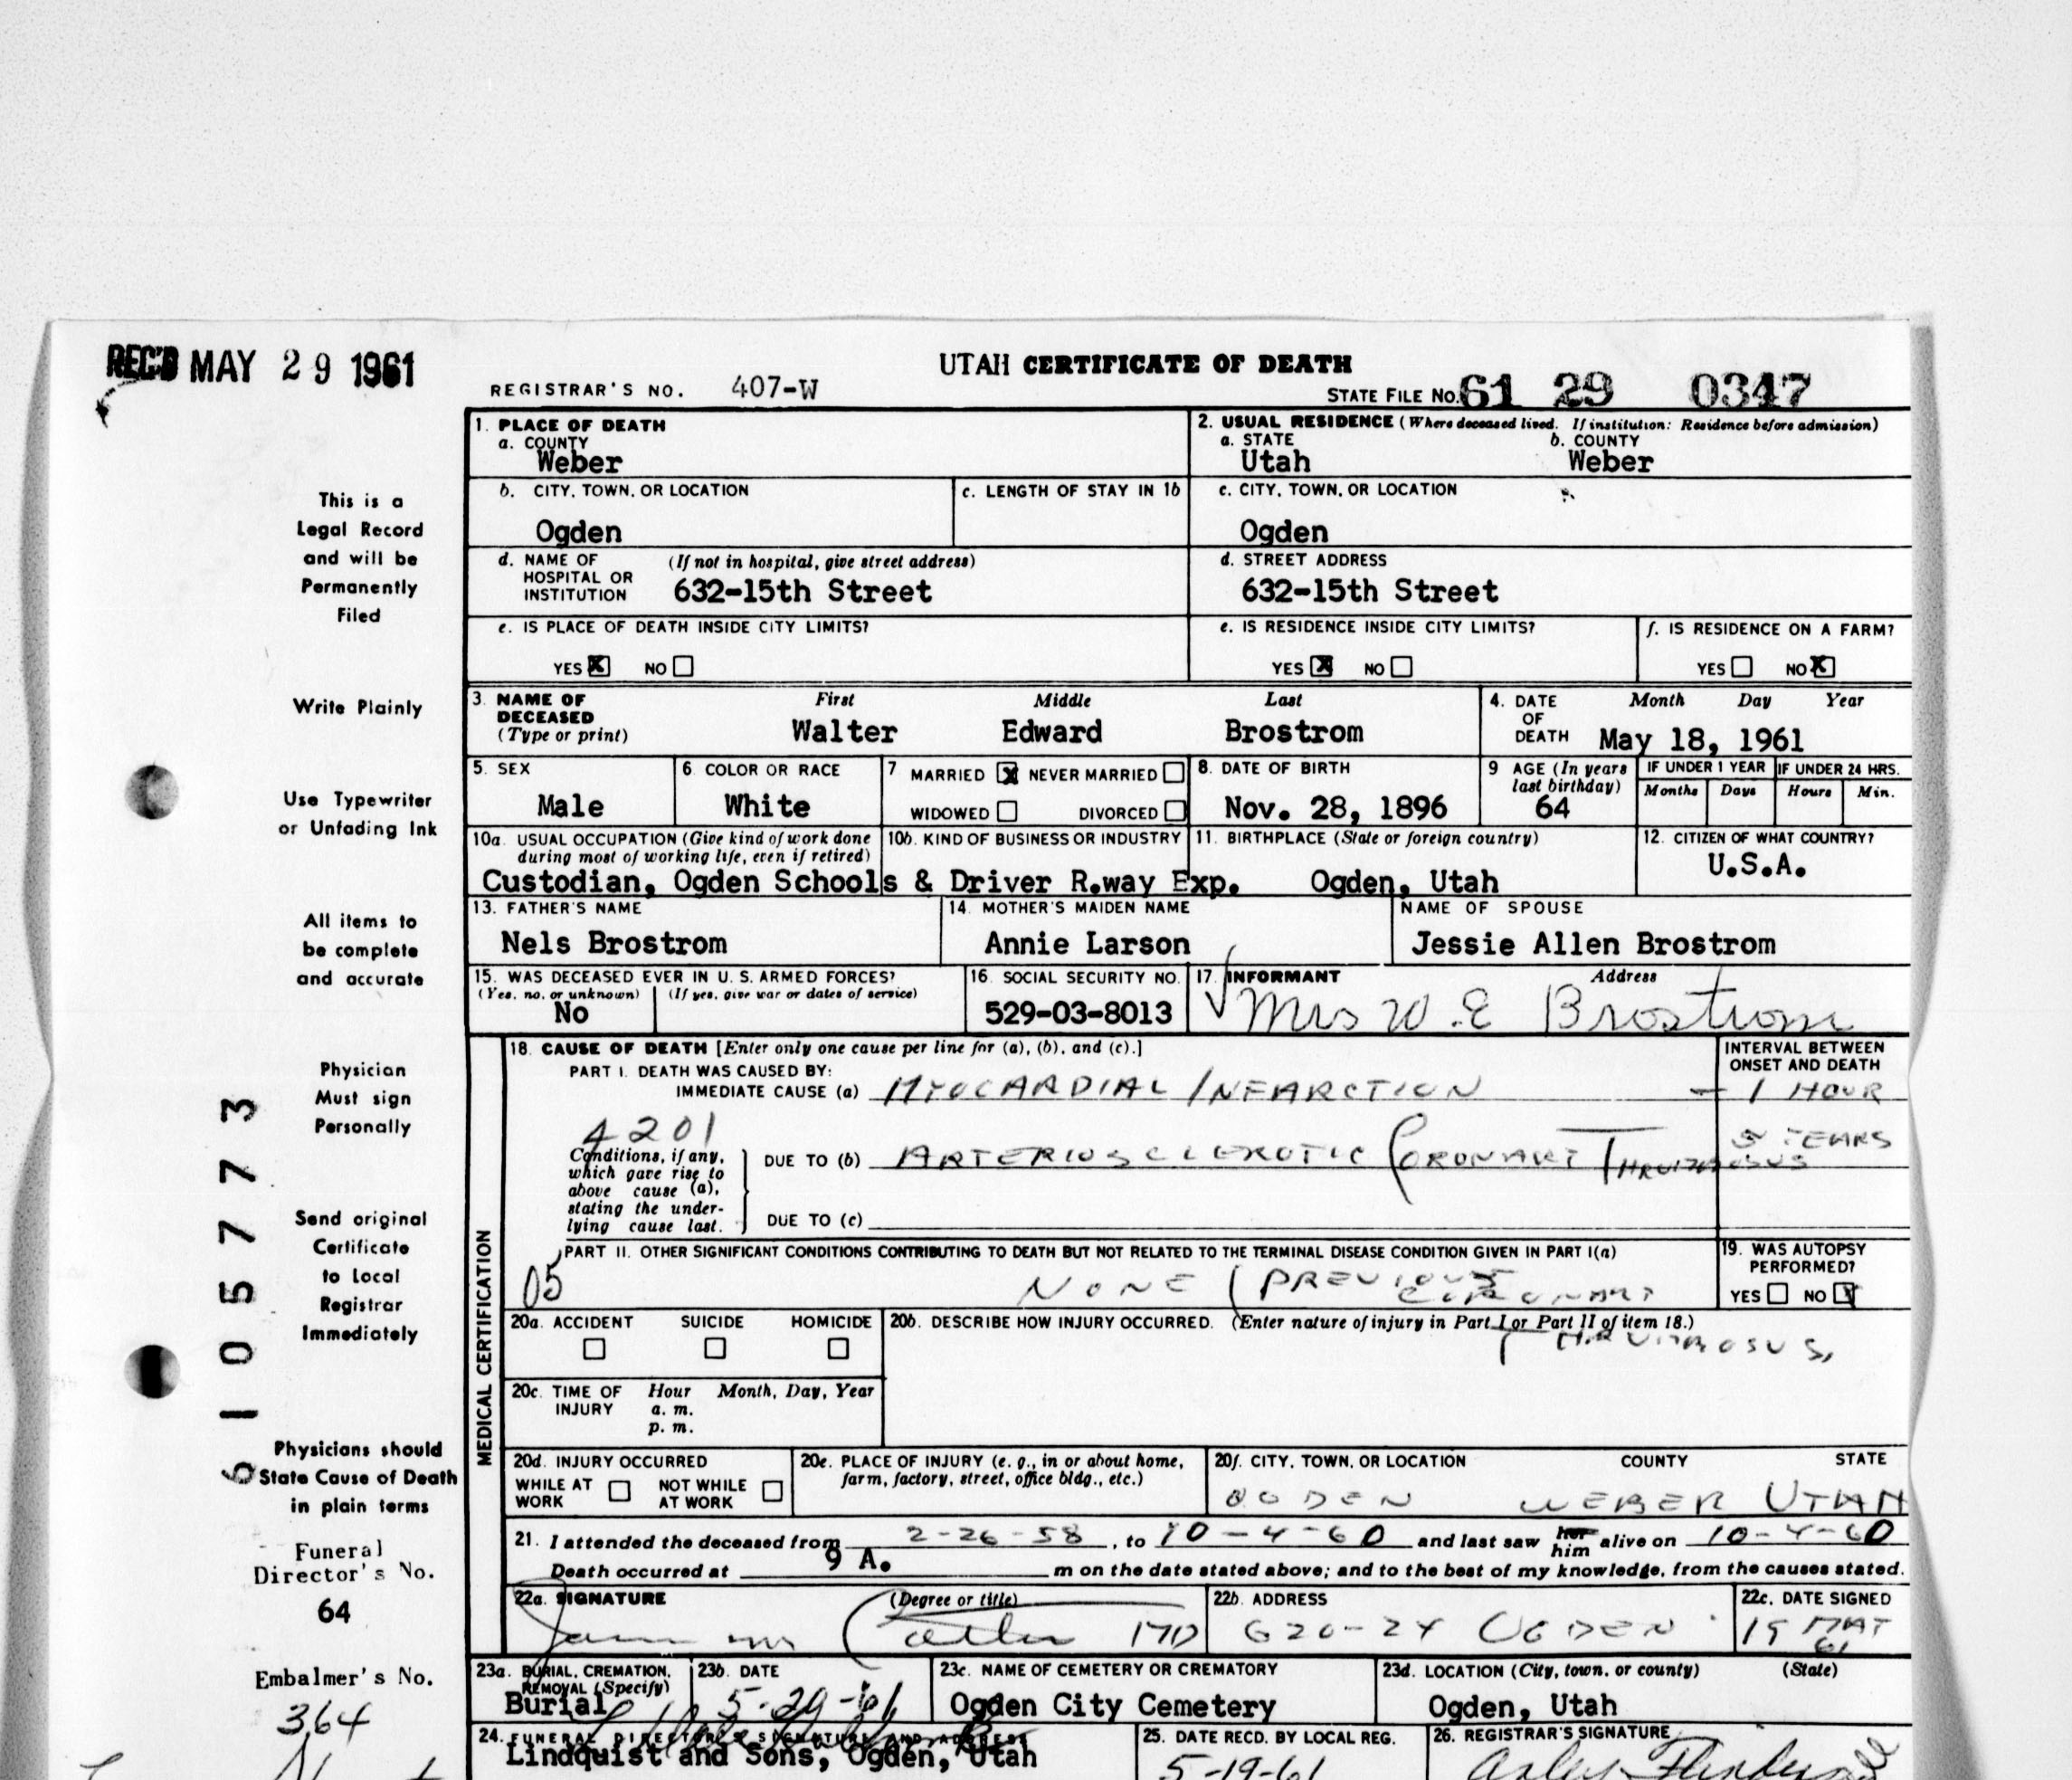 REC'D MAY 29 1961
UTAH CERTIFICATE OF DEATH
REGISTRAR'S NO. 407-W
STATE FILE No. 61 29 0347
1. PLACE OF DEATH
a. COUNTY
Weber
2. USUAL RESIDENCE (Where deceased lived. If institution: Residence before admission)
a. STATE b. COUNTY
Utah Weber
b. CITY, TOWN, OR LOCATION
Ogden
c. LENGTH OF STAY IN 1b
c. CITY, TOWN, OR LOCATION
Ogden
d. NAME OF HOSPITAL OR INSTITUTION (If not in hospital, give street address)
632-15th Street
d. STREET ADDRESS
632-15th Street
e. IS PLACE OF DEATH INSIDE CITY LIMITS?
YES X NO
e. IS RESIDENCE INSIDE CITY LIMITS?
YES X NO
f. IS RESIDENCE ON A FARM?
YES NO X
3. NAME OF DECEASED (Type or print)
First Middle Last
Walter Edward Brostrom
4. DATE OF DEATH
Month Day Year
May 18, 1961
5. SEX
Male
6. COLOR OR RACE
White
7 MARRIED X NEVER MARRIED
WIDOWED DIVORCED
8. DATE OF BIRTH
Nov. 28, 1896
9 AGE (In years last birthday)
64
IF UNDER 1 YEAR IF UNDER 24 HRS.
Months Days Hours Min.
10a. USUAL OCCUPATION (Give kind of work done during most of working life, even if retired)
10b. KIND OF BUSINESS OR INDUSTRY
Custodian, Ogden Schools & Driver R.way Exp.
11. BIRTHPLACE (State or foreign country)
Ogden, Utah
12. CITIZEN OF WHAT COUNTRY?
U.S.A.
13. FATHER'S NAME
Nels Brostrom
14. MOTHER'S MAIDEN NAME
Annie Larson
NAME OF SPOUSE
Jessie Allen Brostrom
15. WAS DECEASED EVER IN U. S. ARMED FORCES?
(Yes, no, or unknown) (If yes, give war or dates of service)
No
16. SOCIAL SECURITY NO.
529-03-8013
17. INFORMANT Address
Mrs W.E Brostrom
MEDICAL CERTIFICATION
18. CAUSE OF DEATH [Enter only one cause per line for (a), (b), and (c).]
INTERVAL BETWEEN ONSET AND DEATH
PART I. DEATH WAS CAUSED BY:
IMMEDIATE CAUSE (a) MYOCARDIAL INFARCTION — 1 HOUR
4201
Conditions, if any, which gave rise to above cause (a), stating the underlying cause last.
DUE TO (b) ARTERIOSCLEROTIC CORONARY THROMBOSUS 5 YEARS
DUE TO (c)
PART II. OTHER SIGNIFICANT CONDITIONS CONTRIBUTING TO DEATH BUT NOT RELATED TO THE TERMINAL DISEASE CONDITION GIVEN IN PART I(a)
05 NONE (PREVIOUS CORONARY THROMBOSUS,
19. WAS AUTOPSY PERFORMED?
YES NO
20a. ACCIDENT SUICIDE HOMICIDE
20b. DESCRIBE HOW INJURY OCCURRED. (Enter nature of injury in Part I or Part II of item 18.)
20c. TIME OF INJURY Hour Month, Day, Year
a. m.
p. m.
20d. INJURY OCCURRED
WHILE AT WORK NOT WHILE AT WORK
20e. PLACE OF INJURY (e. g., in or about home, farm, factory, street, office bldg., etc.)
20f. CITY, TOWN, OR LOCATION COUNTY STATE
OGDEN WEBER UTAH
21. I attended the deceased from 2-26-58, to 10-4-60 and last saw her him alive on 10-4-60
Death occurred at 9 A. m on the date stated above; and to the best of my knowledge, from the causes stated.
22a. SIGNATURE (Degree or title)
MD
22b. ADDRESS
620-24 OGDEN
22c. DATE SIGNED
19 MAY 61
23a. BURIAL, CREMATION, REMOVAL (Specify)
Burial
23b. DATE
23c. NAME OF CEMETERY OR CREMATORY
Ogden City Cemetery
23d. LOCATION (City, town, or county) (State)
Ogden, Utah
24. FUNERAL DIRECTOR'S SIGNATURE AND ADDRESS
Lindquist and Sons, Ogden, Utah
25. DATE RECD. BY LOCAL REG.
5-19-61
26. REGISTRAR'S SIGNATURE
This is a
Legal Record
and will be
Permanently
Filed
Write Plainly
Use Typewriter
or Unfading Ink
All items to
be complete
and accurate
Physician
Must sign
Personally
Send original
Certificate
to Local
Registrar
Immediately
Physicians should
State Cause of Death
in plain terms
Funeral
Director's No.
64
Embalmer's No.
364
6105773